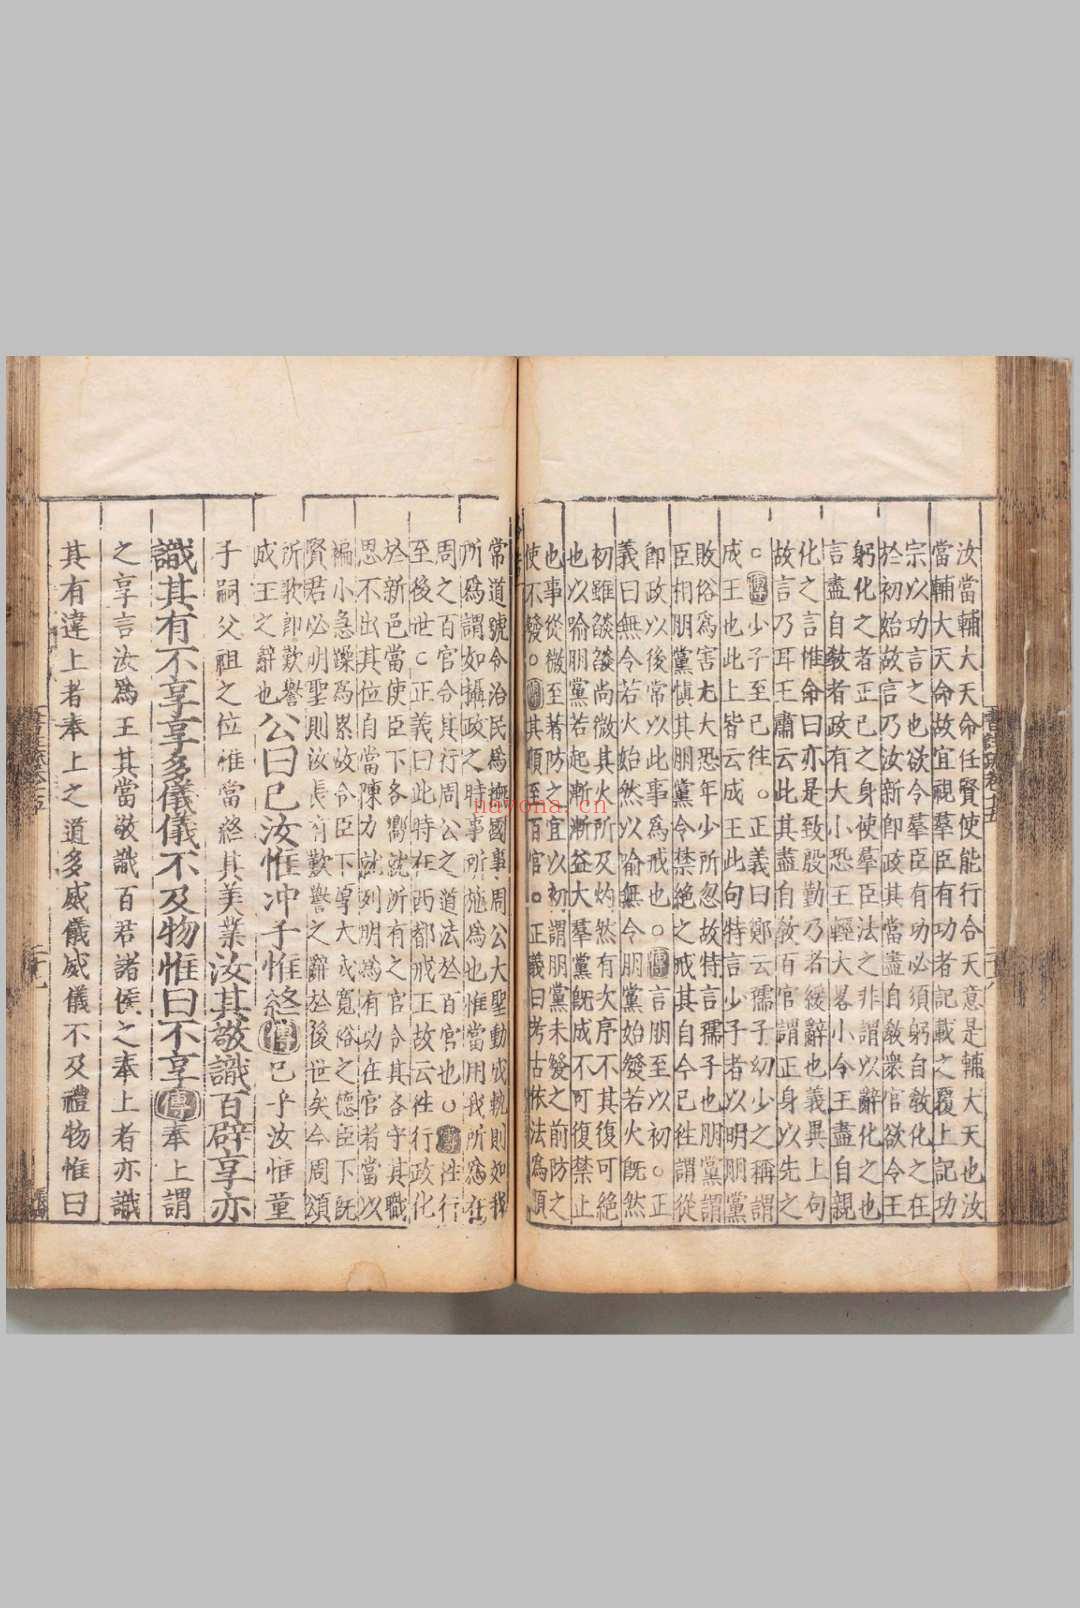 汝當輔大天命任賢使能行合天意是輔大天也汝
當輔大天命故宜視羣臣有功者記載之覆上記功
宗以功言之也欲令羣臣有功必須躬自教化之在
於初始故言乃汝新即政其當盡自教衆官欲令王
躬化之者正已之身使羣臣法之非謂以辭化之也
言盡自教者政有大小恐王輕大畧小令王盡自親
化之言惟命曰亦是致殷勤乃者緩辭也義異上句
故言乃耳王肅云此其盡自教百官謂正身以先之
○傳少子至已往○正義曰鄭云孺子幼少之稱謂
成王也此上皆云成王此句特言少子者以明朋黨
敗俗爲害尤大恐年少所忽故特言孺子也朋黨謂
臣相朋黨慎其朋黨令禁絶之戒其自今已徃謂從
即政以後常以此事爲戒也○傳言朋至以初○正
義曰無令若火始然以喻無令朋黨始發若火既然
初雖燄燄尚微其火所及灼然有次序不其復可絶
也以喻朋黨若起漸漸益大羣黨既成不可復禁止
也事從微至著防之宜以初謂朋黨未發之前防之
使不發○傳其順至百官○正義曰考古依法爲順
常道號令治民爲撫國事周公大聖動成軌則如我
所爲謂如攝政之時事所施爲也惟當用我所爲在
周之百官令其行周公之道法於百官也○傳徃行
至後世○正義曰此時在西都戒王故云徃行政化
於新邑當使臣下各嚮就所有之官令其各守其職
思不出其位自當陳力就列明爲有功在官者當以
褊小急躁爲累故令臣下厚大成寬裕之德臣下既
賢君必明聖則汝長有歎譽之辭於後世矣今周頌
所歌即歎譽
成王之辭也公曰已汝惟沖子惟終傳已乎汝惟童
子嗣父祖之位惟當終其美業汝其敬識百辟享亦
識其有不享享多儀儀不及物惟曰不享傳奉上謂
之享言汝爲王其當敬識百君諸侯之奉上者亦識
其有違上者奉上之道多威儀威儀不及禮物惟曰
nayona.cn